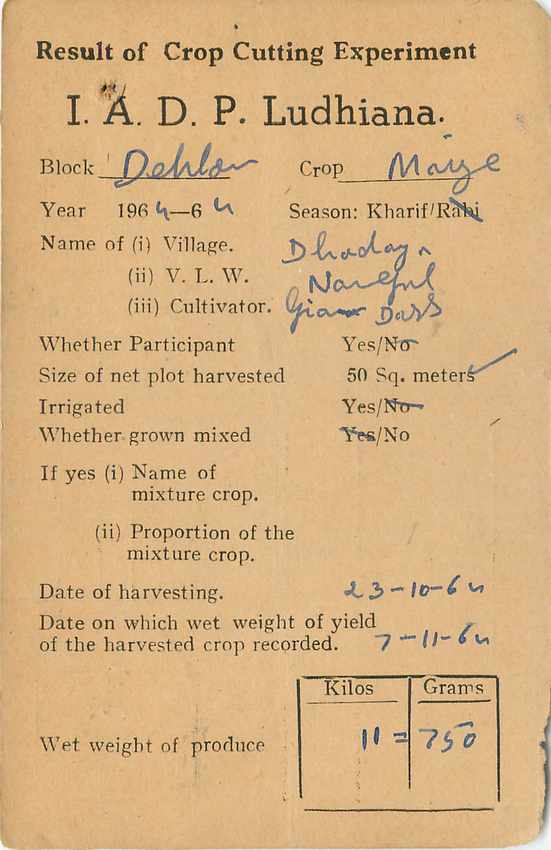 Result of Crop Cutting Experiment
I. A. D. P. Ludhiana.
Block Dehlon Crop Maize
Year 1964—64 Season: Kharif/Rabi
Name of (i) Village.
(ii) V. L. W.
(iii) Cultivator. Gian Dass
Whether Participant Yes/No
Size of net plot harvested 50 Sq. meters
Irrigated Yes/No
Whether grown mixed Yes/No
If yes (i) Name of
mixture crop.
(ii) Proportion of the
mixture crop.
Date of harvesting. 23-10-64
Date on which wet weight of yield
of the harvested crop recorded. 7-11-64
Kilos Grams
Wet weight of produce 11 = 750